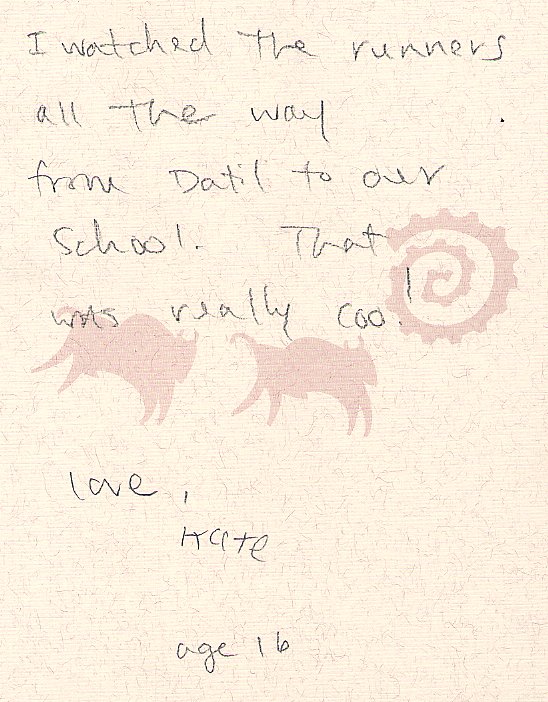 I watched the runners
all the way
from Datil to our
School. That
was really cool.
love,
Kate
age 16